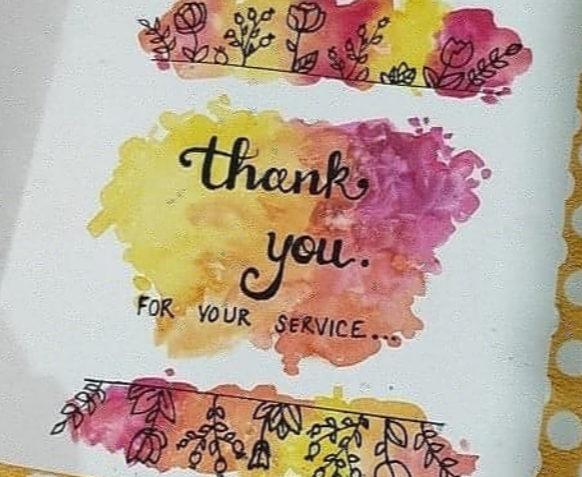 thank
you.
FOR YOUR SERVICE...